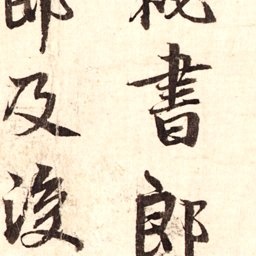 秘書郎
郎及後